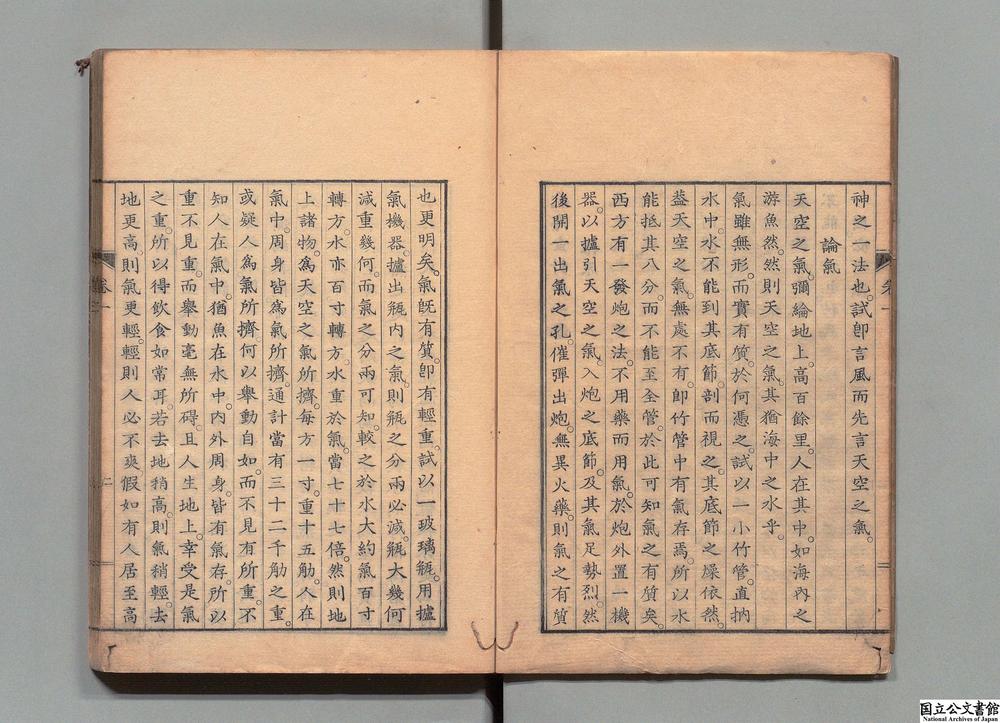 神之一法也。試卽言風而先言天空之氣。
論氣
天空之氣。彌綸地上。高百餘里。人在其中。如海內之
游魚然。然則天空之氣。其猶海中之水乎。
氣雖無形。而實有質。於何憑之。試以一小竹管。直抐
水中。水不能到其底節。剖而視之。其底節之燥依然。
葢天空之氣。無處不有。卽竹管中有氣存焉。所以水
能抵其八分。而不能至全管。於此可知氣之有質矣。
西方有一發炮之法。不用藥而用氣。於炮外置一機
器。以攎引天空之氣。入炮之底節。及其氣足勢烈。然
後開一出氣之孔。催彈出炮。無異火藥。則氣之有質
也更明矣。氣旣有質。卽有輕重。試以一玻璃瓶。用攎
氣機器。攎出瓶內之氣。則瓶之分兩必減。瓶大幾何
減重幾何。而氣之分兩可知。較之於水。大約氣百寸
轉方。水亦百寸轉方。水重於氣。當七十七倍。然則地
上諸物。爲天空之氣所擠。每方一寸。重十五觔。人在
氣中。周身皆爲氣所擠。通計當有三十二千觔之重。
或疑人爲氣所擠。何以舉動自如。而不見有所重。不
知人在氣中。猶魚在水中。內外周身。皆有氣存。所以
重不見重。而舉動毫無所碍。且人生地上。幸受是氣
之重。所以得飲食如常耳。若去地稍高。則氣稍輕。去
地更高。則氣更輕。輕則人必不爽。假如有人居至高
卷一
二
国立公文書館
National Archives of Japan